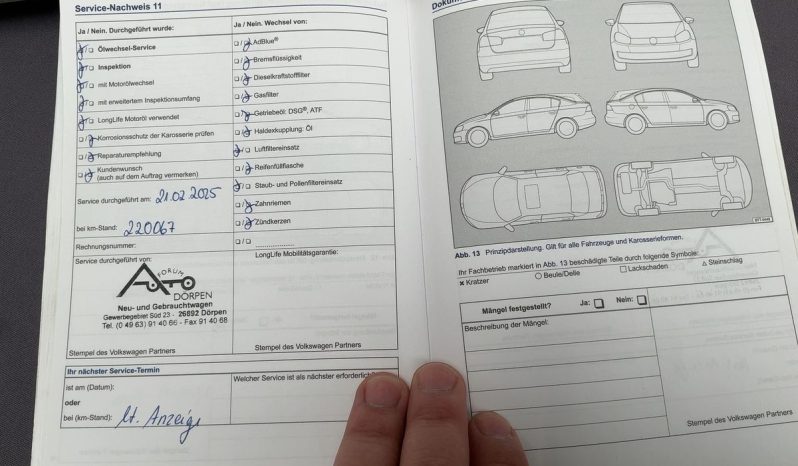 Service-Nachweis 11
Ja / Nein. Durchgeführt wurde:
Ölwechsel-Service
Inspektion
mit Motorölwechsel
mit erweitertem Inspektionsumfang
LongLife Motoröl verwendet
Korrosionsschutz der Karosserie prüfen
Reparaturempfehlung
Kundenwunsch
(auch auf dem Auftrag vermerken)
Service durchgeführt am: 21.02.2025
bei km-Stand: 220067
Rechnungsnummer:
Service durchgeführt von:
FORUM
AUTO
DÖRPEN
Neu- und Gebrauchtwagen
Gewerbegebiet Süd 23 - 26892 Dörpen
Tel. (0 49 63) 91 40 66 - Fax 91 40 68
Stempel des Volkswagen Partners
Ja / Nein. Wechsel von:
AdBlue®
Bremsflüssigkeit
Dieselkraftstofffilter
Gasfilter
Getriebeöl: DSG®, ATF
Haldexkupplung: Öl
Luftfiltereinsatz
Reifenfüllflasche
Staub- und Pollenfiltereinsatz
Zahnriemen
Zündkerzen
LongLife Mobilitätsgarantie:
Stempel des Volkswagen Partners
Ihr nächster Service-Termin
ist am (Datum):
oder
bei (km-Stand): lt. Anzeige
Welcher Service ist als nächster erforderlich?
Abb. 13 Prinzipdarstellung. Gilt für alle Fahrzeuge und Karosserieformen.
Ihr Fachbetrieb markiert in Abb. 13 beschädigte Teile durch folgende Symbole:
Kratzer
Beule/Delle
Lackschaden
Steinschlag
Mängel festgestellt? Ja: Nein:
Beschreibung der Mängel:
Stempel des Volkswagen Partners